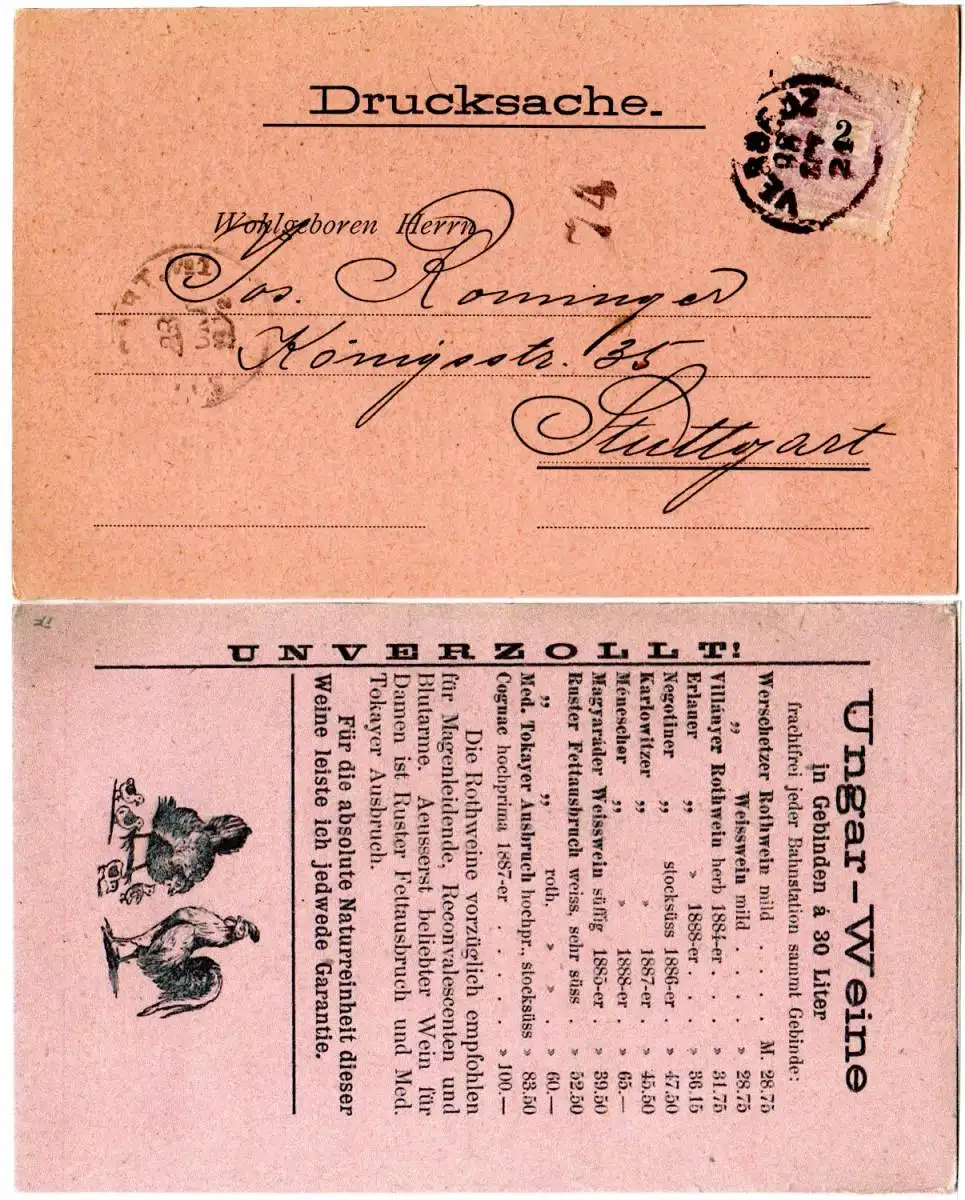 Drucksache.
2
74
Wohlgeboren Herrn
Jos. Romminger
Königsstr. 35
Stuttgart
UNVERZOLLT!
Ungar-Weine
in Gebinden à 30 Liter
frachtfrei jeder Bahnstation sammt Gebinde:
Werschetzer Rothwein mild . . . . M. 28.75
„ Weisswein mild . . . . » 28.75
Villányer Rothwein herb 1884-er . . » 31.75
Erlauer „ » 1888-er . . » 36.15
Negotiner „ stocksüss 1886-er . » 47.50
Karlowitzer „ » 1887-er . » 45.50
Ménescher „ » 1888-er . » 65.—
Magyaráder Weisswein süffig 1885-er . » 39.50
Ruster Fettausbruch weiss, sehr süss . » 52.50
„ „ roth, » » . » 60.—
Med. Tokayer Ausbruch hochpr., stocksüss » 83.50
Cognac hochprima 1887-er . . . . » 100.—
Die Rothweine vorzüglich empfohlen
für Magenleidende, Reconvalescenten und
Blutarme. Aeusserst beliebter Wein für
Damen ist Ruster Fettausbruch und Med.
Tokayer Ausbruch.
Für die absolute Naturreinheit dieser
Weine leiste ich jedwede Garantie.